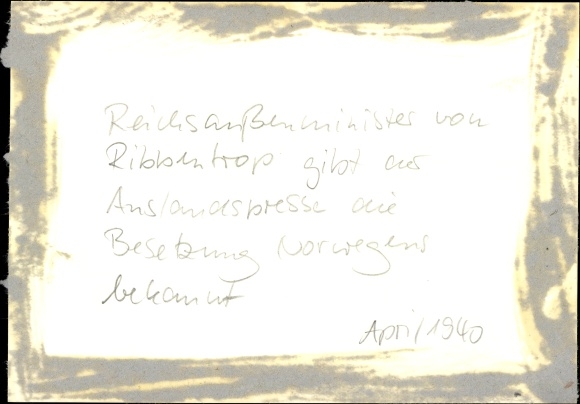 Reichsaußenminister von
Ribbentrop gibt der
Auslandspresse die
Besetzung Norwegens
bekannt
April 1940